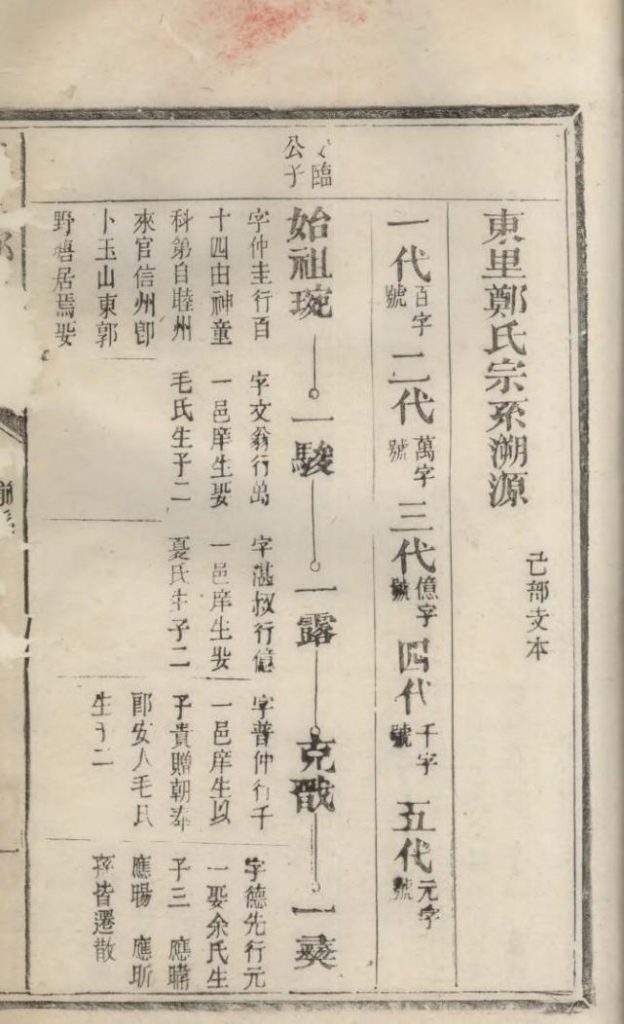 東里鄭氏宗系溯源
己部支本
一代百字號 二代萬字號 三代億字號 四代千字號 五代元字號
臨
公子
始祖琬
字仲圭行百
十四由神童
科第自睦州
來官信州卽
卜玉山東郭
野梧居焉娶
一駿
字文翁行萬
一邑庠生娶
毛氏生子二
一露
字湛叔行億
一邑庠生娶
夏氏生子二
克戩
字普仲行千
一邑庠生以
子貴贈朝奉
郎安人毛氏
生子二
一夔
字德先行元
一娶余氏生
子三 應
應暘 應昕
孫皆遷散